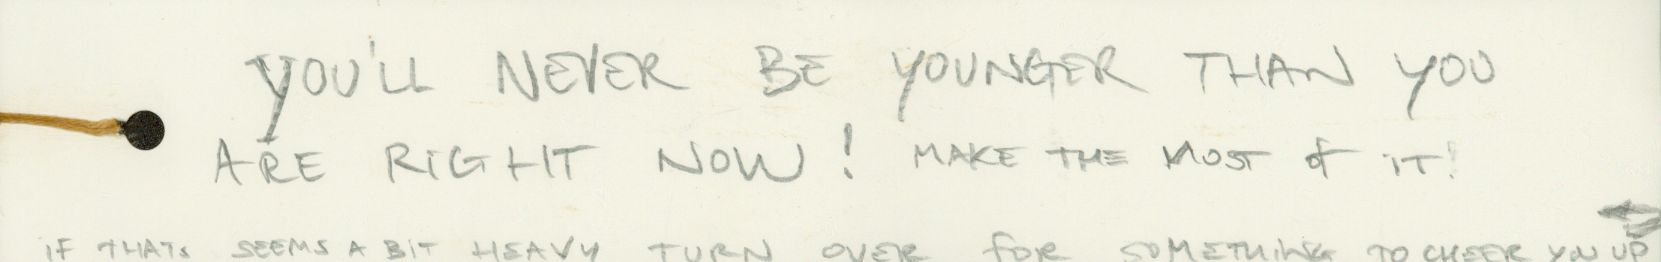 YOU'LL NEVER BE YOUNGER THAN YOU
ARE RIGHT NOW! MAKE THE MOST OF IT!
IF THATS SEEMS A BIT HEAVY TURN OVER FOR SOMETHING TO CHEER YOU UP